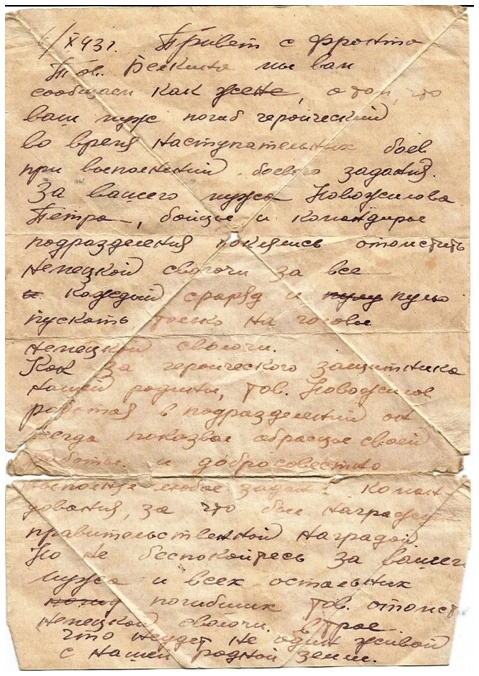 /X 43г. Привет с фронта
Тов. мы вам
сообщаем как жене, о том, что
ваш муж погиб геройческий
во время наступательных боев
при выполнений боевого задания.
За вашего мужа Новожилова
Петра, бойцы и командиры
подразделения поклялись отомстить
немецкой сволочи за все
и каждый снаряд и пулу пулю
пускать точно на головы
немецкой сволочи.
Как за геройческого защитника
нашей родины, тов. Новожилов
работая в подразделений он
всегда показывал образцы своей
работы и добросовестно
любое коман
дования, за что был награжден
правительственной наградой
Но не беспокойтесь за вашего
мужа и всех остальных
погибших тов. отомст
немецкой сволочи втрое.
что не уйдет не один живой
с нашей родной земли.